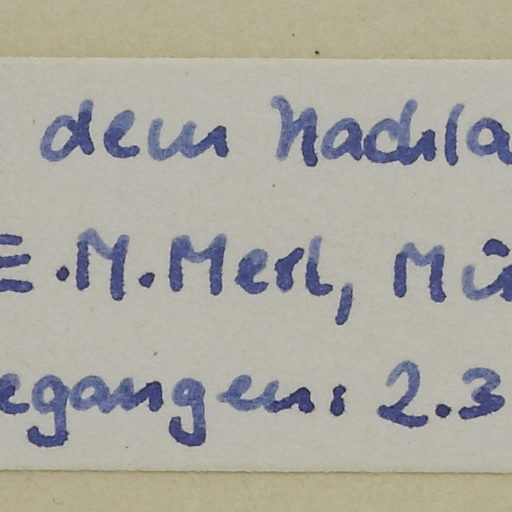 dem Nachla
E.M.Merl, Mü
egangen: 2.3